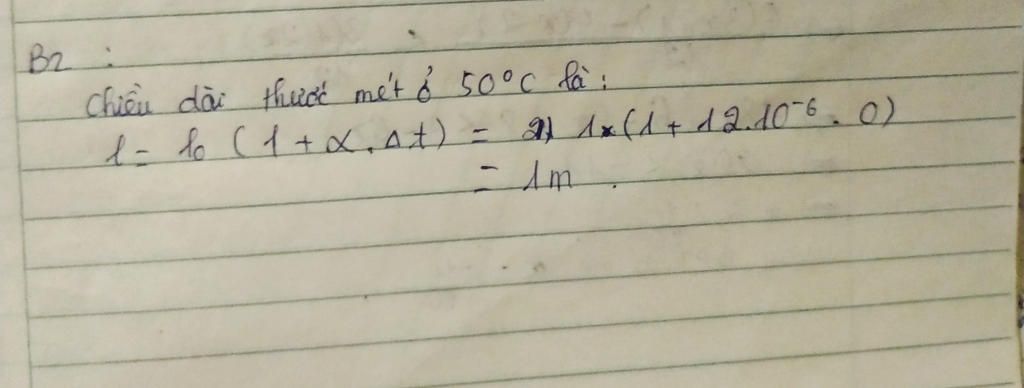 B2 :
Chiều dài thước mét ở 50°C là:
l = l₀ (1 + α. Δt) = 1 × (1 + 12.10⁻⁶. 0)
= 1m.